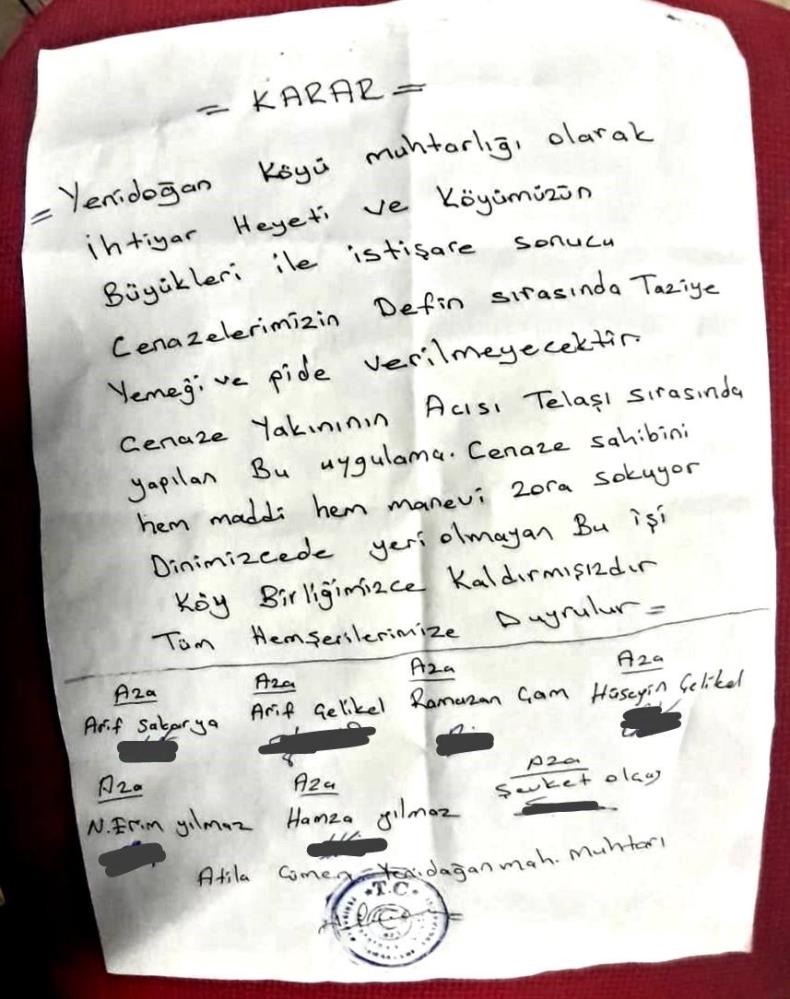 = KARAR =
= Yenidoğan Köyü muhtarlığı olarak
ihtiyar Heyeti ve Köyümüzün
Büyükleri ile istişare sonucu
Cenazelerimizin Defin sırasında Taziye
Yemeği ve pide verilmeyecektir.
Cenaze Yakınının Acısı Telaşı sırasında
yapılan Bu uygulama. Cenaze sahibini
hem maddi hem manevi zora sokuyor
Dinimizcede yeri olmayan Bu işi
Köy Birliğimizce Kaldırmışızdır
Tüm Hemşerilerimize Duyrulur =
Aza Aza Aza Aza
Arif Sakarya Arif Çelikel Ramazan Çam Hüseyin Çelikel
Aza Aza Aza
N.Erim yılmaz Hamza yılmaz Şevket olcay
Atila Cümen Yenidağan mah. Muhtarı
T.C.